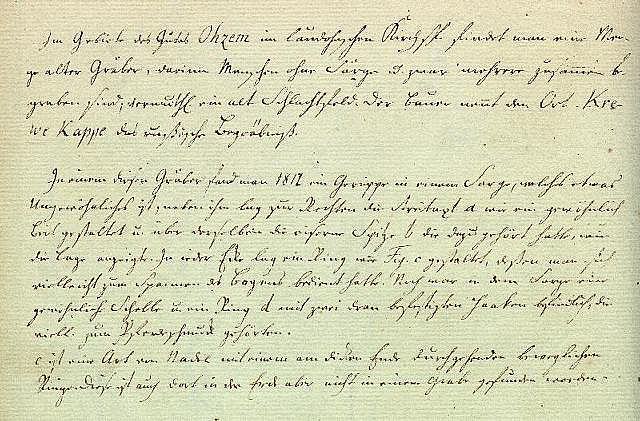 Im Gebiete des Gutes Ohzem im laudohnschen Kirchsp. findet man eine Men-
ge alter Gräber, darinn Menschen ohne Särge u. zwar mehrere zusammen be-
graben sind, vermuthl. ein alt Schlachtfeld. Der Bauer nennt den Ort. Kre-
we Kappe das russische Begräbniß.
In einem dieser Gräber fand man 1817 ein Gerippe in einem Sarge, welches etwas
Ungewöhnliches ist, neben ihm lag zur Rechten die Streitaxt a wie ein gewöhnlich
Beil gestaltet u. über derselben die eiserne Spitze b die dazu gehört hatte, wie
die Lage anzeigte. In der Erde lag ein Ring wie Fig. c gestaltet, dessen man sich
vielleicht zum Spannen des Bogens bedient hatte. Noch war in dem Sarge eine
gewöhnlich Schelle u. ein Ring d mit zwei dran befestigten Haaken befindlich, die
viell. zum Pferdeschmuck gehörten.
e ist eine Art von Nadel mit einem am dicken Ende durchgehenden beweglichen
Ringe. Diese ist auch dort in der Erde aber nicht in einem Grabe gefunden worden.